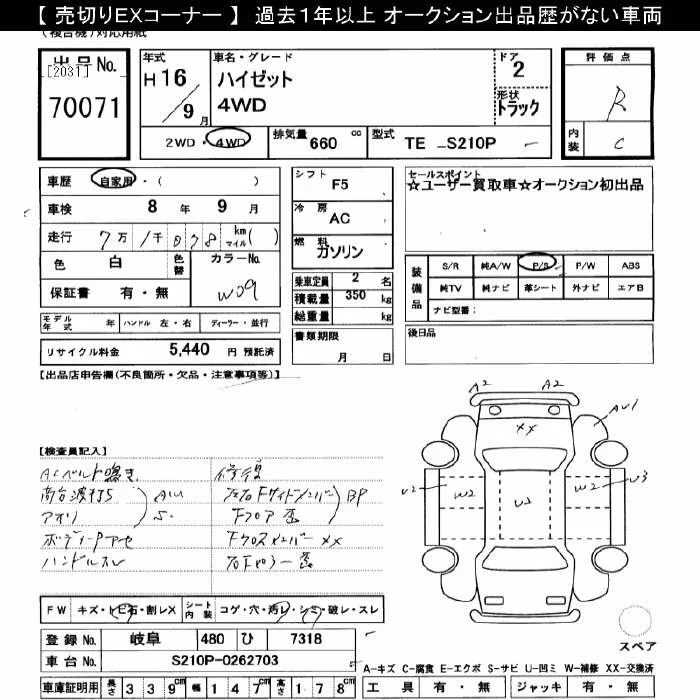 【 売切りEXコーナー 】 過去1年以上 オークション出品歴がない車両
(複合機)対応用紙
出品No.
[2031]
70071
年式
H 16 / 9 月
車名・グレード
ハイゼット
4WD
ドア
2
形状
トラック
2WD・4WD
排気量 660 cc
型式 TE_S210P-
評価点
R
内装
C
車歴 自家用・( )
車検 8 年 9 月
走行 7万1千078 km マイル( )
色 白 色替 カラーNo.
W09
保証書 有・無
モデル年式 年 ハンドル 左・右 ディーラー・並行
リサイクル料金 5,440 円 預託済
シフト F5
冷房 AC
燃料 ガソリン
乗車定員 2 名
積載量 350 kg
総重量 kg
書類期限
月 日
セールスポイント
☆ユーザー買取車☆オークション初出品
装備品
S/R 純A/W P/S P/W ABS
純TV 純ナビ 革シート 外ナビ エアB
ナビ型番:
後日品
【出品店申告欄(不良箇所・欠品・注意事項等)】
【検査員記入】
ACベルト鳴き
荷台波打S
アオリ
AU
S・
ボディーPアセ
ハンドルスレ
修復
Fサイドメンバー
BP
Fフロア歪
Fクロスメンバー XX
A2 A2
AU1
XX
U2 W2 U2 W2 U3
FW キズ・トビ石・割レX
シート内装 コゲ・穴・汚レ・シミ・破レ・スレ
登録No. 岐阜 480 ひ 7318
車台No. S210P-0262703
車庫証明用 長さ 339cm 幅 147cm 高さ 178cm
スペア
A-キズ C-腐食 E-エクボ S-サビ U-凹ミ W-補修 XX-交換済
工具 有・無 ジャッキ 有・無